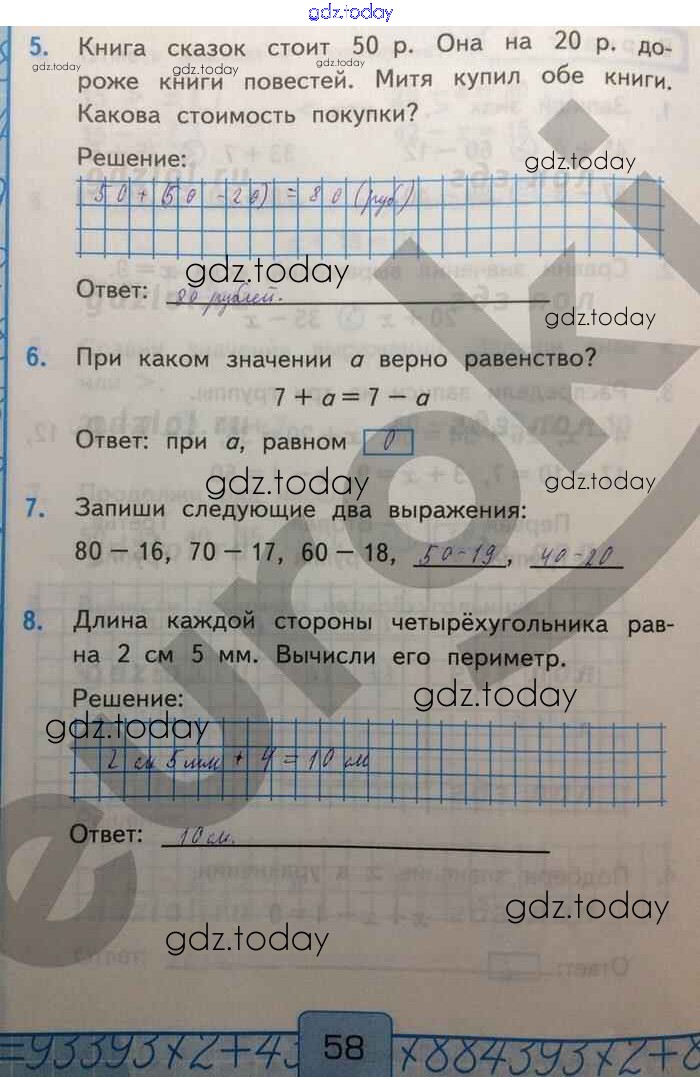 gdz.today
5. Книга сказок стоит 50 р. Она на 20 р. до-
gdz.today gdz.today gdz.today
роже книги повестей. Митя купил обе книги.
Какова стоимость покупки?
Решение:
gdz.today
50+(50-20)=80 (руб)
gdz.today
Ответ: 80 рублей.
gdz.today
6. При каком значении a верно равенство?
7 + a = 7 − a
Ответ: при a, равном 0
gdz.today gdz.today
7. Запиши следующие два выражения:
80 − 16, 70 − 17, 60 − 18, 50-19, 40-20
8. Длина каждой стороны четырёхугольника рав-
на 2 см 5 мм. Вычисли его периметр.
Решение:
gdz.today
gdz.today
2 см 5 мм + 4 = 10 см
Ответ: 10 см.
gdz.today
gdz.today
58
=93393x2+43 x884393x2+8
euroki